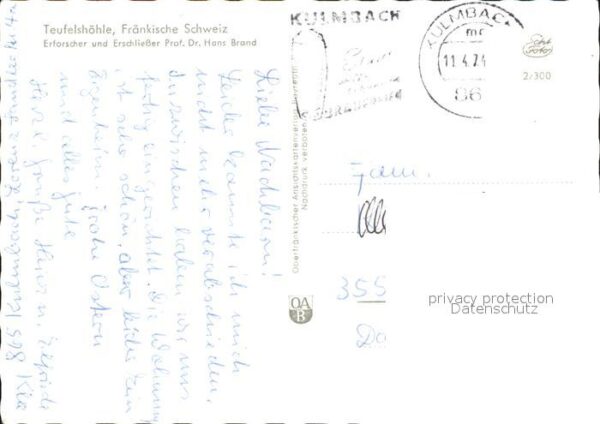 Teufelshöhle, Fränkische Schweiz
Erforscher und Erschließer Prof. Dr. Hans Brand
KULMBACH
KULMBACH
11.4.74
86
2/300
Oberfränkischer Ansichtskartenverlag
Nachdruck verboten
OA
B
Fam.
355
Da
privacy protection
Datenschutz
Liebe Nachbarn!
Leider konnte ich mich
nicht mehr verabschieden.
Inzwischen haben wir uns
fertig eingerichtet. Die Wohnung
ist sehr schön, aber leider kein
Eigenheim. Frohe Ostern
und alles Gute
Herzl. Grüße
Kulmbach